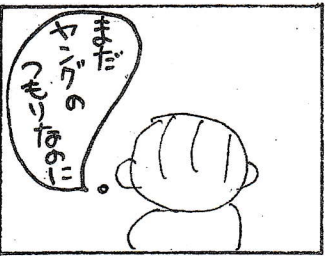 まだ
ヤングの
つもりなのに